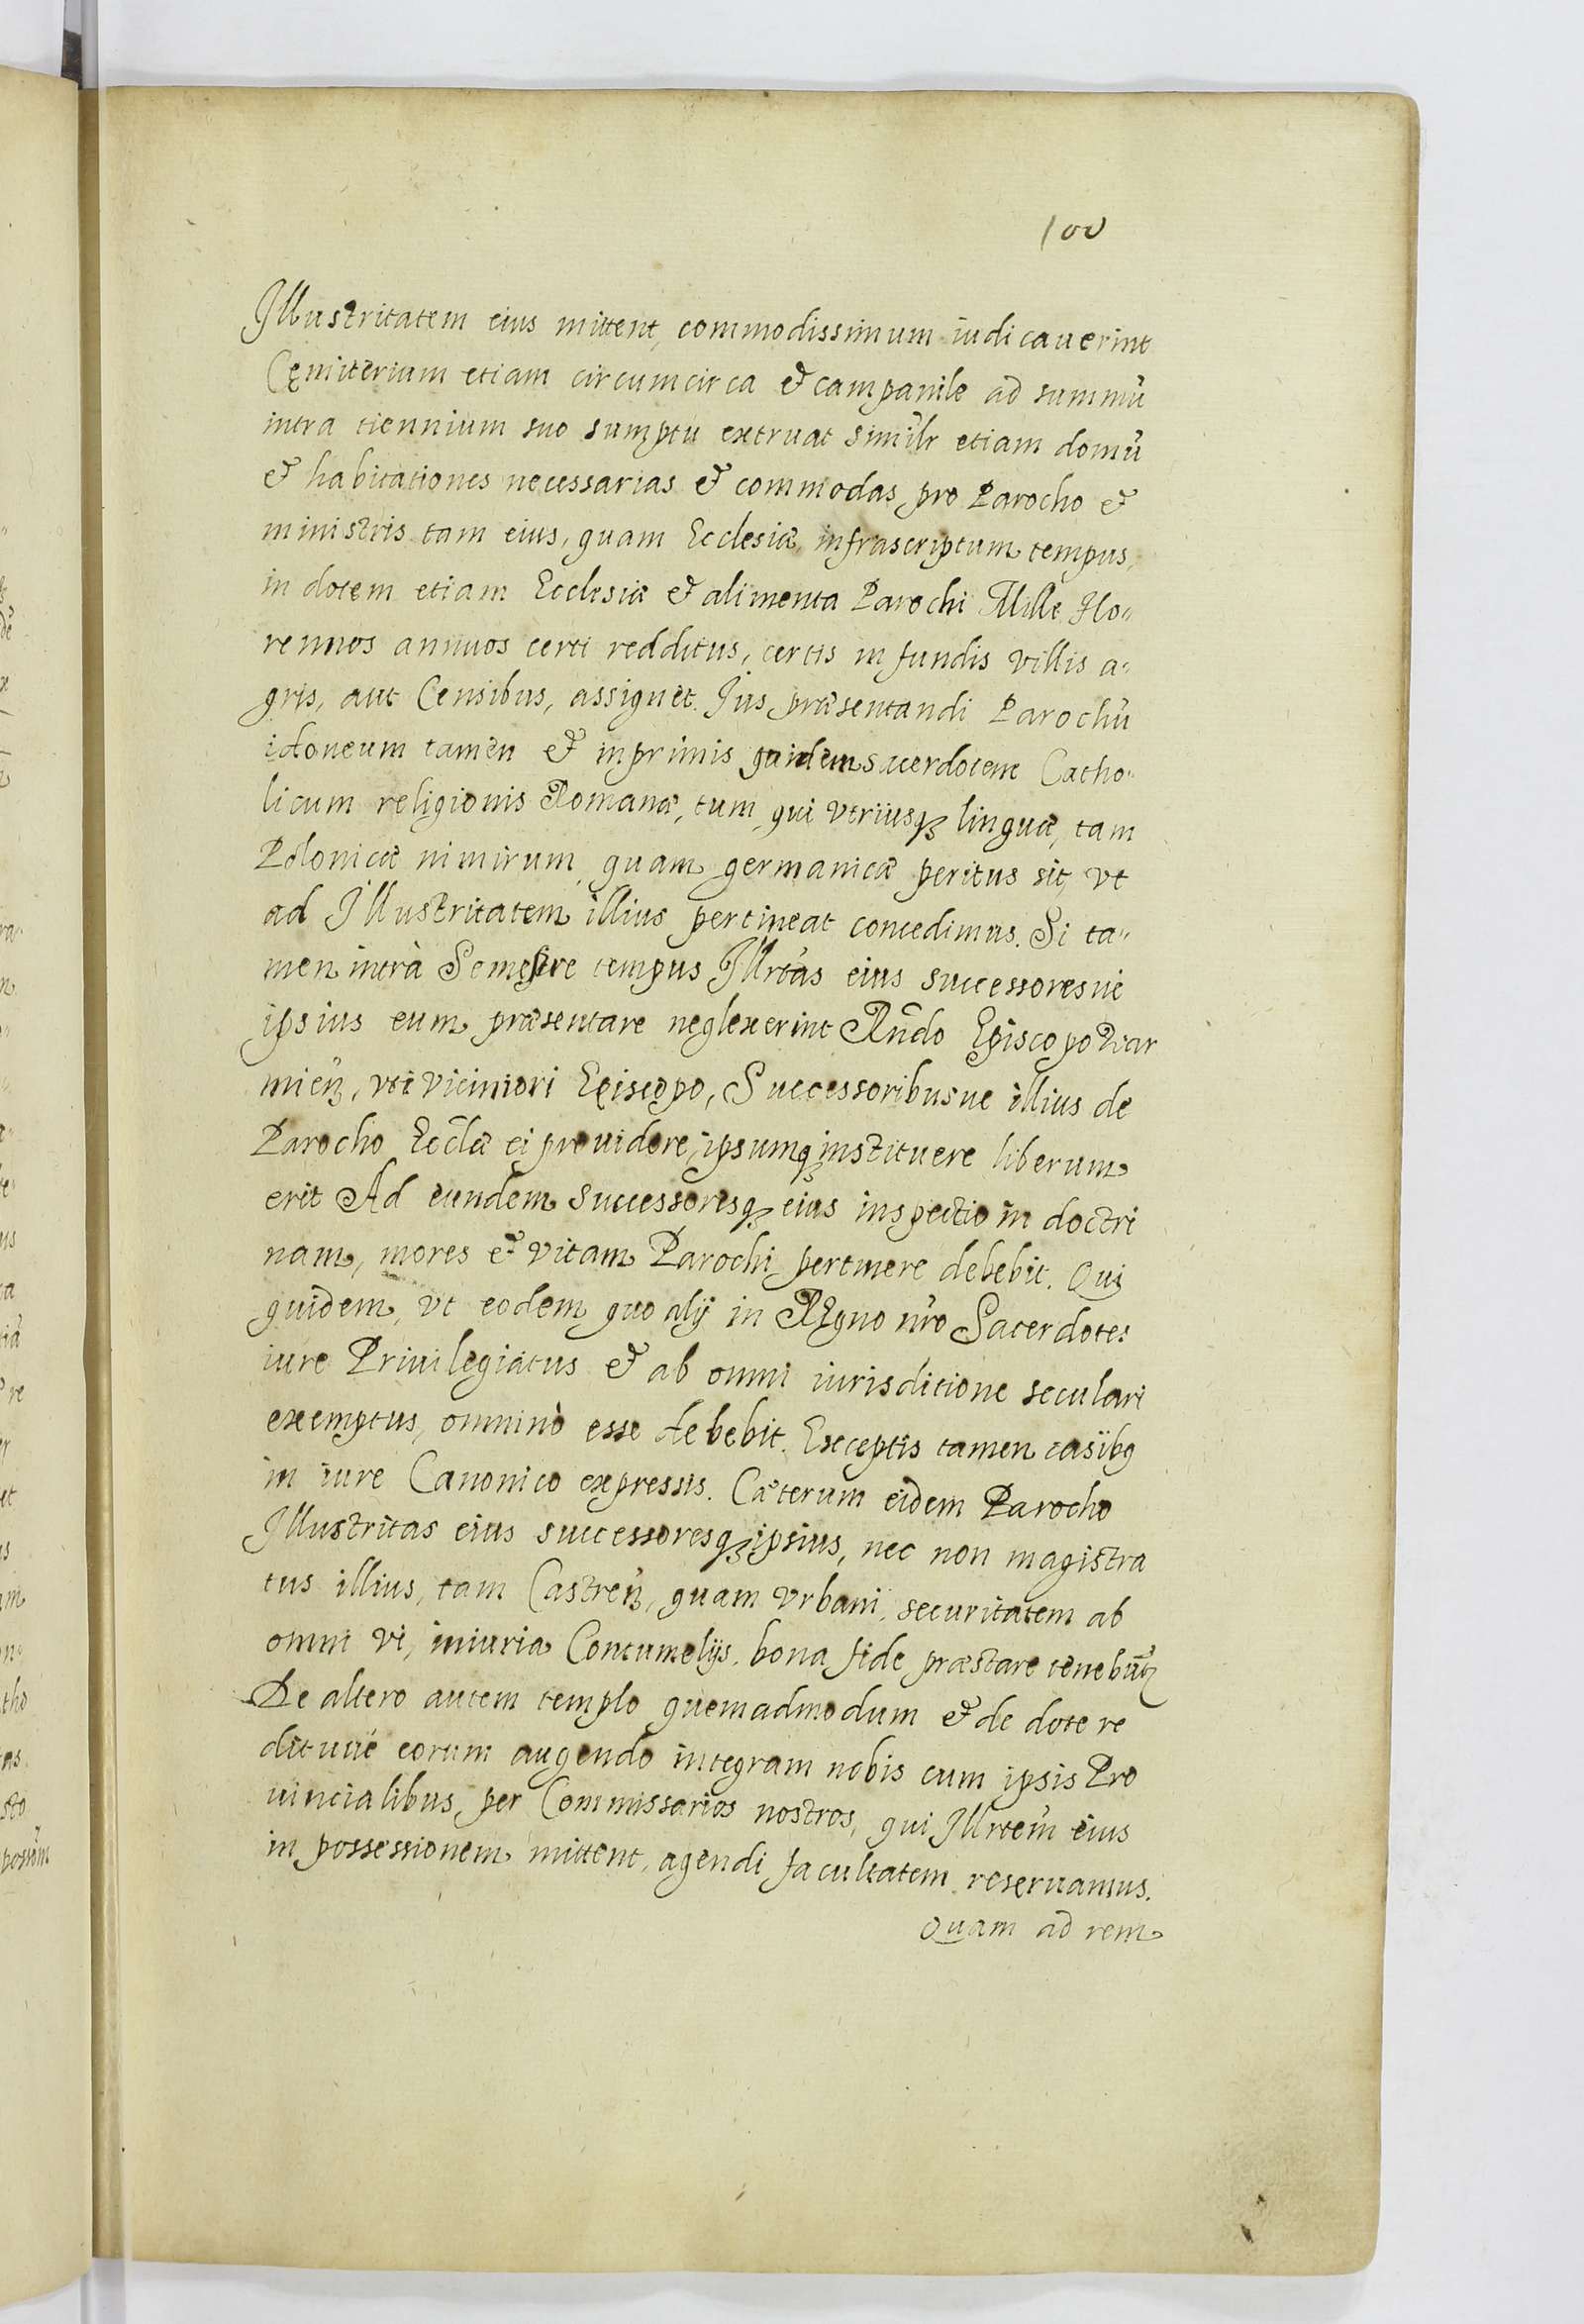 100
Illustritatem eius mittent, commodissimum iudicauerint
Cęmiterium etiam circumcirca & campanile ad summũ
intra tiennium suo sumptu extruat Similr etiam domũ
& habitationes necessarias & commodas pro Parocho &
ministris tam eius, quam Ecclesiæ, infrascriptum tempus,
in dotem etiam Ecclesiæ & alimenta Parochi Mille Flo„
rennos annuos certi redditus, certis in fundis villis a„
gris, aut Censibus, assignet. Ius præsentandi Parochũ
idoneum tamen & inprimis quidem sacerdotem Catho„
licum religionis Romanæ, tum qui vtriusqȝ linguæ, tam
Polonicæ nimirum quam germanicæ peritus sit, vt
ad Illustritatem illius pertineat concedimus. Si ta„
men intrà Semestre tempus Illrtas eius successoresue
ipsius eum præsentare neglexerint Rndo Episcopo War
mieñ, vti viciniori Episcopo, Successoribusue illius de
Parocho Eccłæ ei prouidere, ipsumqȝ instituere liberum
erit Ad eundem successoresqȝ eius inspectio in doctri
nam, mores & vitam Parochi pertinere debebit. Qui
quidem, vt eodem quo alij in REgno nrõ Sacerdotes
iure Priuilegiatus & ab omni iurisditione seculari
exemptus, omninò esse debebit. Exceptis tamen casibꝯ
in iure Canonico expressis. Cæterum eidem Parocho
Illustritas eius successoresqȝ ipsius, nec non magistra
tus illius, tam Castreñ, quam Vrbani, securitatem ab
omni vi, iniuria Contumelijs, bona fide præstare tenebũt
De altero autem templo quemadmodum & de dote re
dituue eorum augendo integram nobis cum ipsis Pro
uincialibus, per Commissarios nostros, qui Illrtem eius
in possessionem mittent, agendi facultatem reseruamus.
Quam ad rem